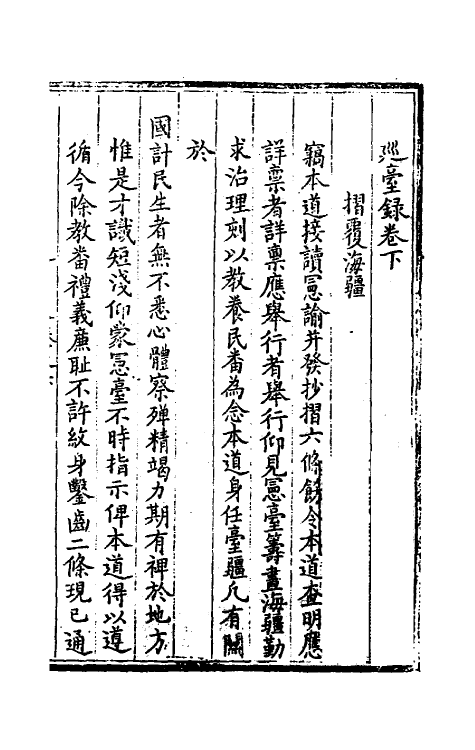 廵臺録卷下
摺覆海疆
竊本道接讀憲諭并發抄摺六條飭令本道查明應
詳禀者詳禀應舉行者舉行仰見憲臺籌畫海疆勤
求治理刻以教養民畨為念本道身任臺疆凡有關
於
國計民生者無不悉心體察殫精竭力期有裨於地方
惟是才識短淺仰蒙憲臺不時指示俾本道得以遵
循今除教畨禮義亷耻不許紋身鑿齒二條現已通